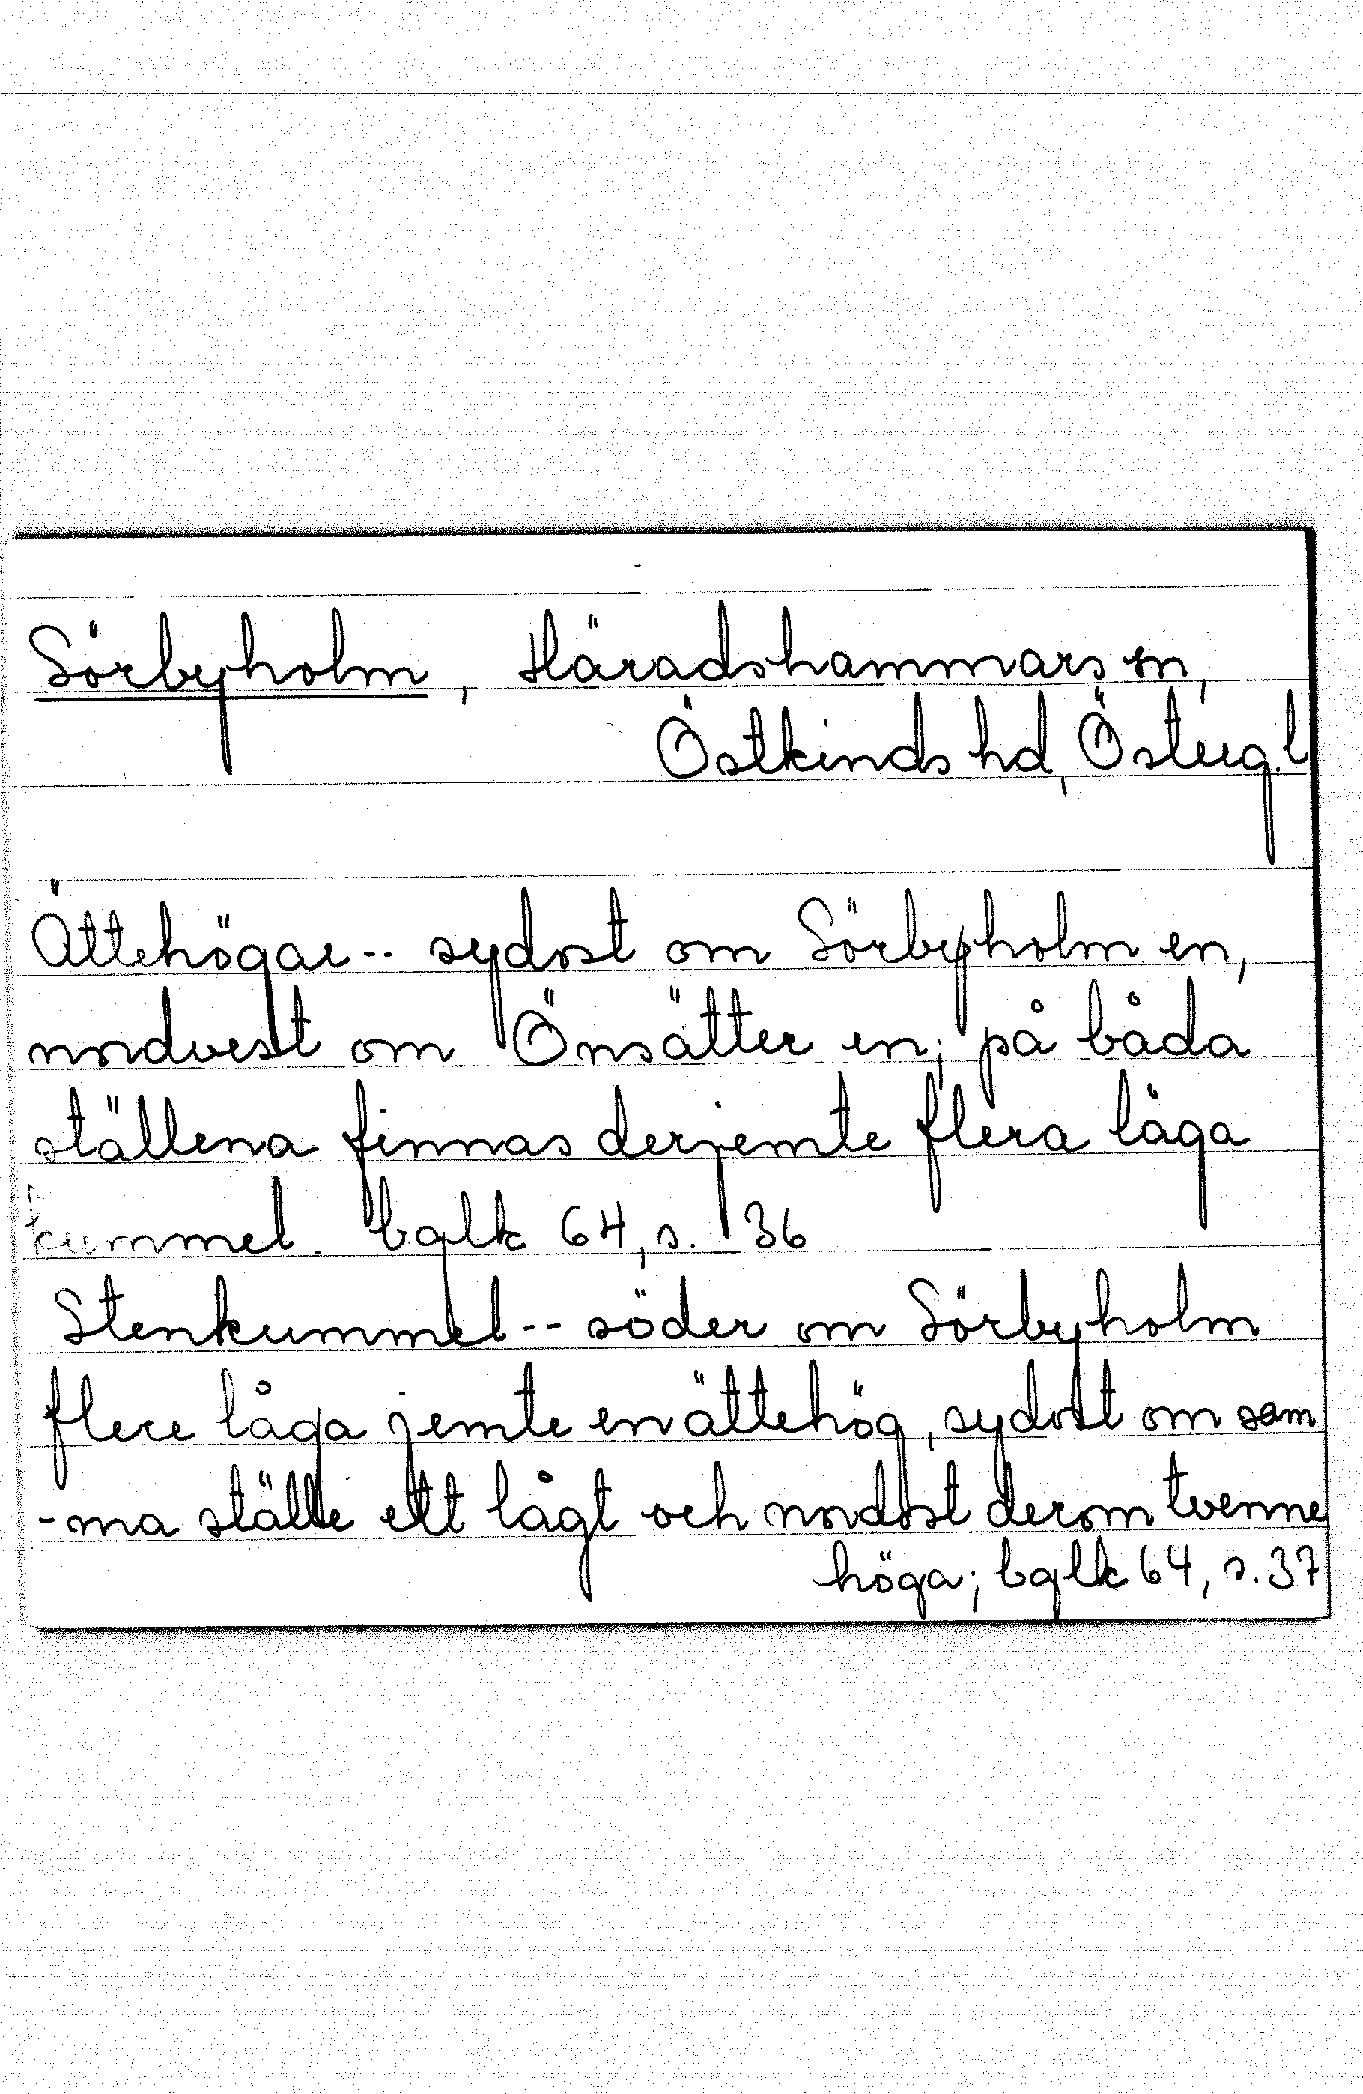 Sörbyholm, Häradshammars sn,
Östkinds hd, Östergl
Ättehögar -- sydost om Sörbyholm en,
nordvest om Önsätter en; på båda
ställena finnas derjemte flera låga
kummel. bglk 64, s. 36
Stenkummel -- söder om Sörbyholm
flere låga jemte en ättehög, sydost om sam
-ma ställe ett lågt och nordost derom tvenne
höga; bglk 64, s. 37